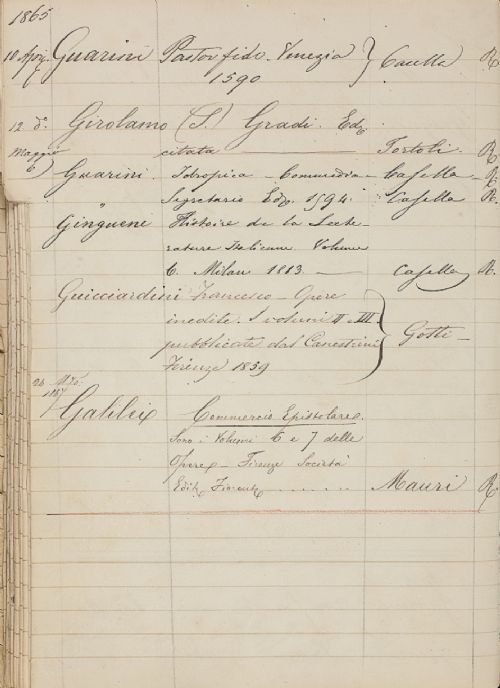 1865
10 Apr. Guarini Pastor fido. Venezia
1590 } Casella R
12 do. Girolamo (S.) Gradi. Ediz
Maggio citata — Tortoli. R
6 Guarini. Idropica — Commedia — Casella — R.
" Segretario Ediz. 1594. Casella R.
Ginguené Histoire de la Lecte-
rature Italienne. Volume
6. Milan 1813. — Casella R.
Guicciardini Francesco — Opere
inedite. I volumi II e III.
pubblicate dal Canestrini } Gotti —
Firenze 1859
26
1867
Galilei Commercio Epistolare.
Sono i Volumi 6 e 7 delle
Opere — Firenze Società
Edit. Fiorent. . . . . . . . Mauri R